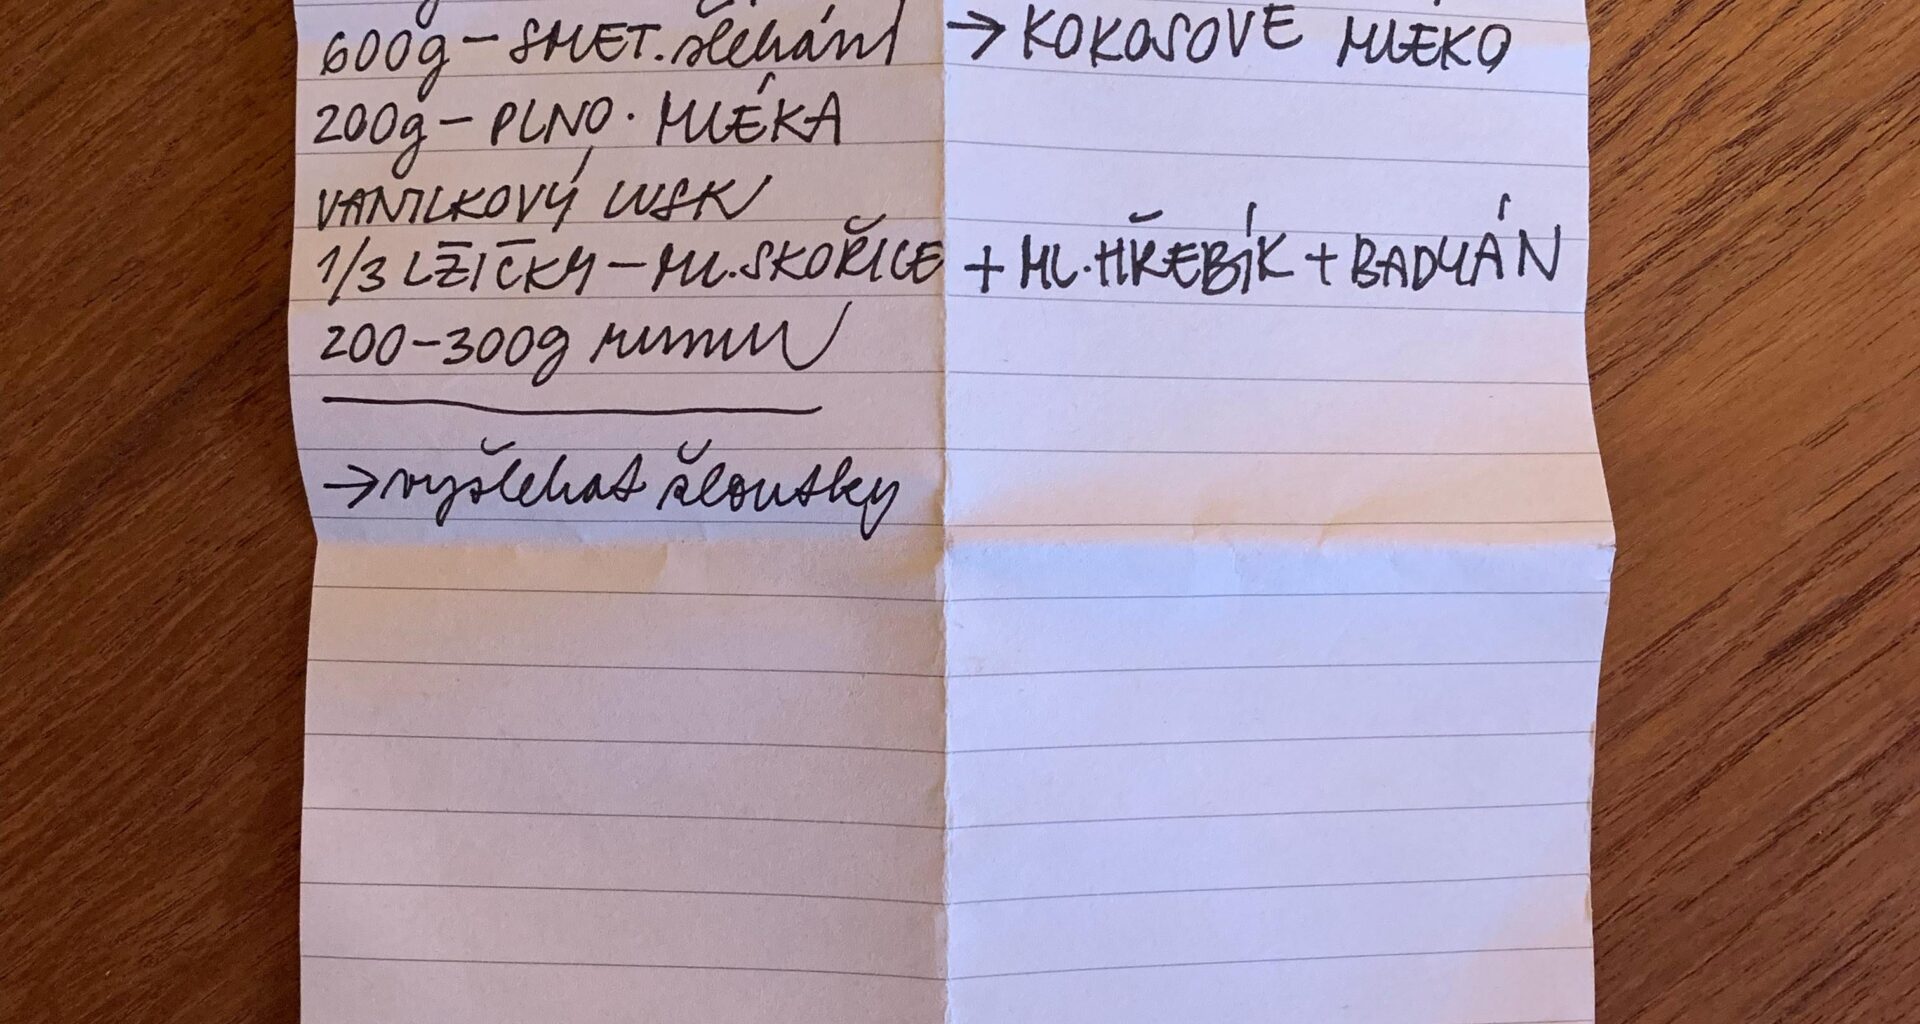 600g – SMET. šlehání → KOKOSOVÉ MLÉKO
200g – PLNO. MLÉKA
VANILKOVÝ LUSK
1/3 LŽIČKY – ML. SKOŘICE + ML. HŘEBÍK + BADYÁN
200–300g rumu
→ vyšlehat žloutky